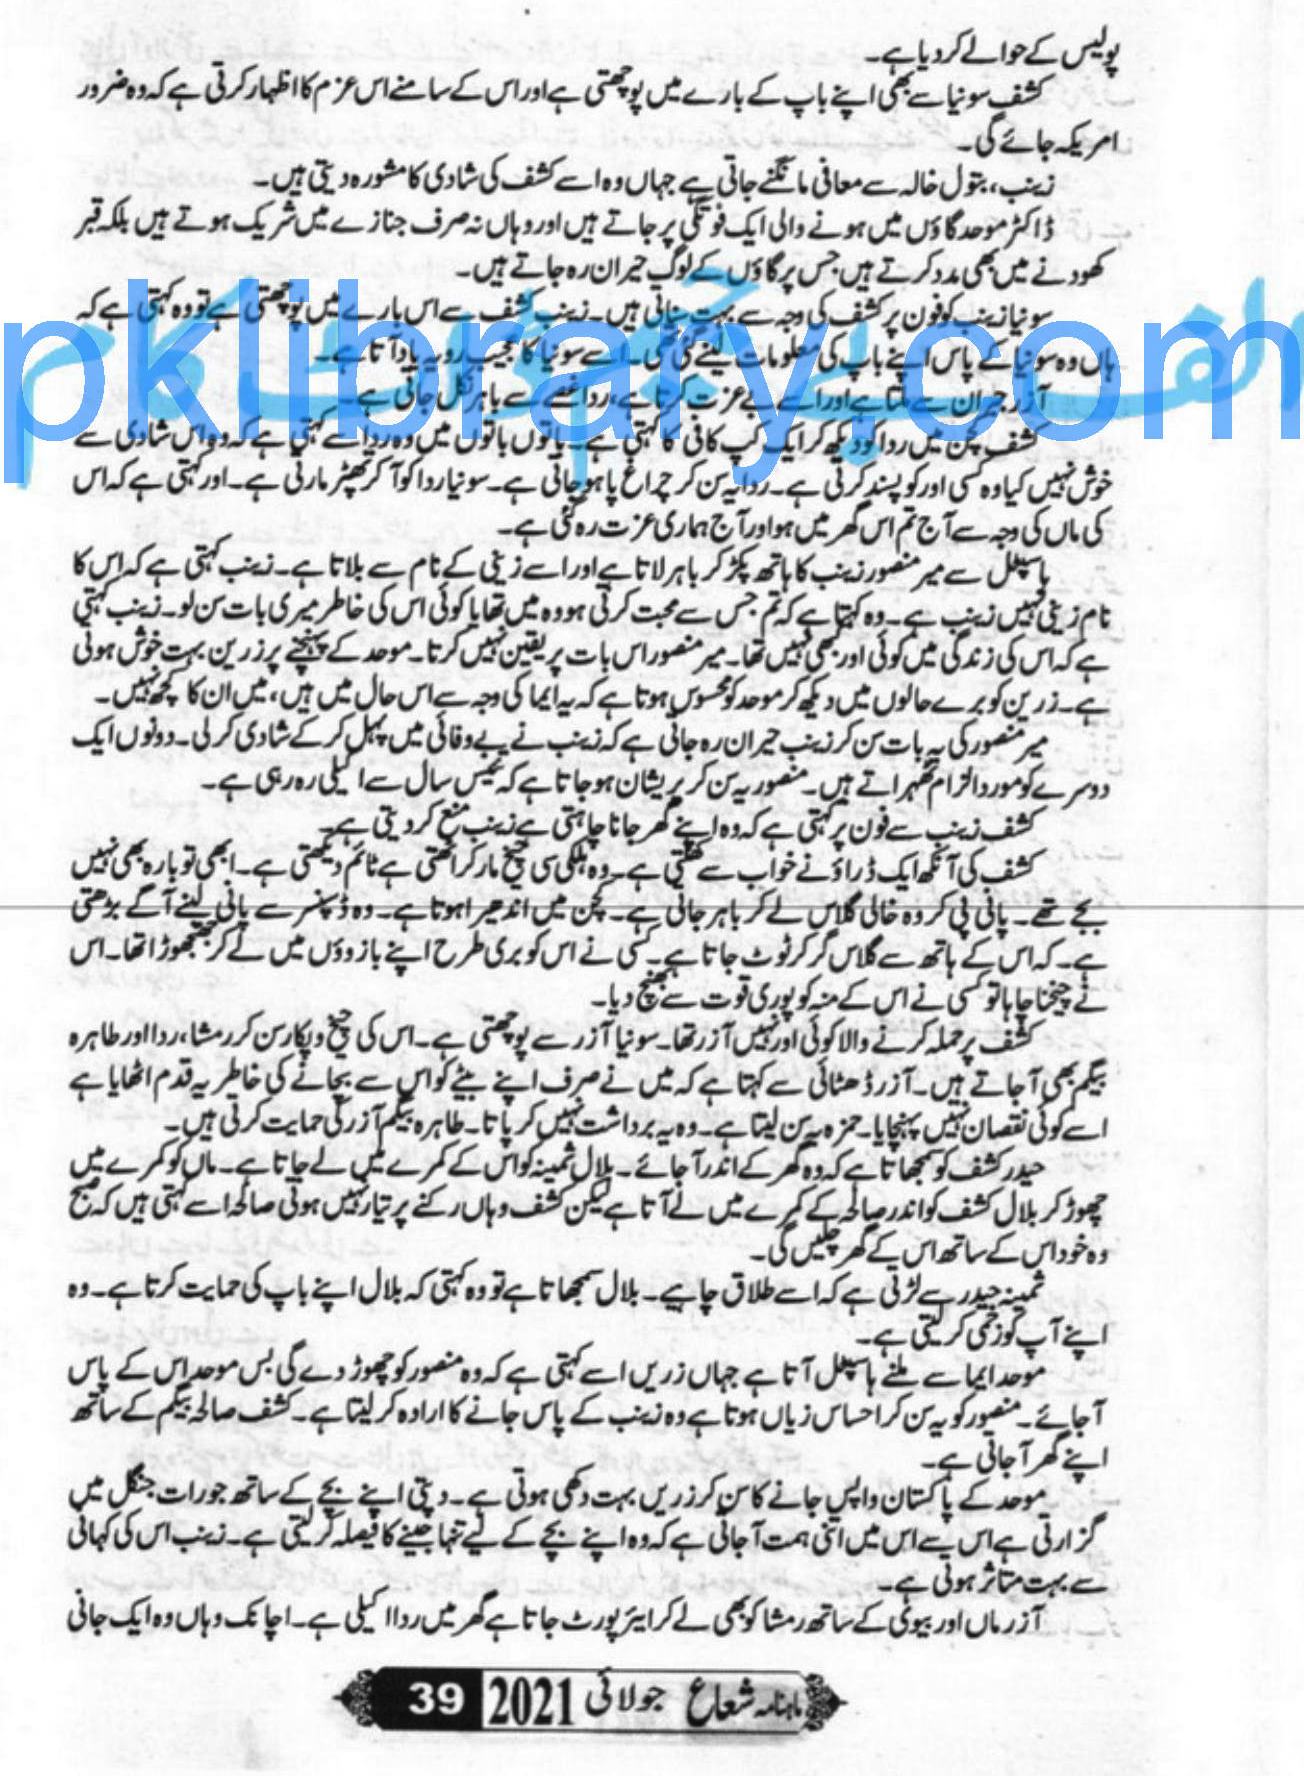 پولیس کے حوالے کر دیا ہے۔
کشف سونیا سے بھی اپنے باپ کے بارے میں پوچھتی ہے اور اس کے سامنے اس عزم کا اظہار کرتی ہے کہ وہ ضرور
امریکہ جائے گی۔
زینب، بتول خالہ سے معافی مانگنے جاتی ہے جہاں وہ اسے کشف کی شادی کا مشورہ دیتی ہیں۔
ڈاکٹر موحد گاؤں میں ہونے والی ایک فوتگی پر جاتے ہیں اور وہاں نہ صرف جنازے میں شریک ہوتے ہیں بلکہ قبر
کھودنے میں بھی مدد کرتے ہیں جس پر گاؤں کے لوگ حیران رہ جاتے ہیں۔
سونیا زینب کو فون پر کشف کی وجہ سے بہت سناتی ہیں۔ زینب کشف سے اس بارے میں پوچھتی ہے تو وہ کہتی ہے کہ
ہاں وہ سونیا کے پاس اپنے باپ کی معلومات لینے گئی تھی۔ اسے سونیا کا عجیب رویہ یاد آتا ہے۔
آزر جبران سے ملتا ہے اور اسے بے عزت کرتا ہے، ردا غصے سے باہر نکل جاتی ہے۔
کشف کچن میں ردا کو دیکھ کر ایک کپ کافی کا کہتی ہے۔ باتوں باتوں میں وہ ردا سے کہتی ہے کہ وہ اس شادی سے
خوش نہیں کیا وہ کسی اور کو پسند کرتی ہے۔ ردا یہ سن کر چراغ پا ہو جاتی ہے۔ سونیا ردا کو آ کر تھپڑ مارتی ہے۔ اور کہتی ہے کہ اس
کی ماں کی وجہ سے آج تم اس گھر میں ہو اور آج ہماری عزت رہ گئی ہے۔
ہاسپٹل سے میر منصور زینب کا ہاتھ پکڑ کر باہر لاتا ہے اور اسے زینی کے نام سے بلاتا ہے۔ زینب کہتی ہے کہ اس کا
نام زینی نہیں زینب ہے۔ وہ کہتا ہے کہ تم جس سے محبت کرتی ہو وہ میں تھا یا کوئی اس کی خاطر میری بات سن لو۔ زینب کہتی
ہے کہ اس کی زندگی میں کوئی اور بھی نہیں تھا۔ میر منصور اس بات پر یقین نہیں کرتا۔ موحد کے پہنچنے پر زرین بہت خوش ہوتی
ہے۔ زرین کو برے حالوں میں دیکھ کر موحد کو محسوس ہوتا ہے کہ یہ ایما کی وجہ سے اس حال میں ہیں، میں ان کا کچھ نہیں۔
میر منصور کی یہ بات سن کر زینب حیران رہ جاتی ہے کہ زینب نے بے وفائی میں پہل کر کے شادی کر لی۔ دونوں ایک
دوسرے کو مورد الزام ٹھہراتے ہیں۔ منصور یہ سن کر پریشان ہو جاتا ہے کہ تیس سال سے اکیلی رہ رہی ہے۔
کشف زینب سے فون پر کہتی ہے کہ وہ اپنے گھر جانا چاہتی ہے زینب منع کر دیتی ہے۔
کشف کی آنکھ ایک ڈراؤنے خواب سے کھلتی ہے۔ وہ ہلکی سی چیخ مار کر اٹھتی ہے ٹائم دیکھتی ہے۔ ابھی تو بارہ بھی نہیں
بجے تھے۔ پانی پی کر وہ خالی گلاس لے کر باہر جاتی ہے۔ کچن میں اندھیرا ہوتا ہے۔ وہ ڈسپنسر سے پانی لینے آگے بڑھتی
ہے۔ کہ اس کے ہاتھ سے گلاس گر کر ٹوٹ جاتا ہے۔ کسی نے اس کو بری طرح اپنے بازوؤں میں لے کر جھنجھوڑا تھا۔ اس
نے چیخنا چاہا تو کسی نے اس کے منہ کو پوری قوت سے بھینچ دیا۔
کشف پر حملہ کرنے والا کوئی اور نہیں آزر تھا۔ سونیا آزر سے پوچھتی ہے۔ اس کی چیخ و پکار سن کر رمشا، ردا اور طاہرہ
بیگم بھی آ جاتے ہیں۔ آزر ڈھٹائی سے کہتا ہے کہ میں نے صرف اپنے بیٹے کو اس سے بچانے کی خاطر یہ قدم اٹھایا ہے
اسے کوئی نقصان نہیں پہنچایا۔ حمزہ یہ سن لیتا ہے۔ وہ یہ برداشت نہیں کر پاتا۔ طاہرہ بیگم آزر کی حمایت کرتی ہیں۔
حیدر کشف کو سمجھاتا ہے کہ وہ گھر کے اندر آ جائے۔ بلال ثمینہ کو اس کے کمرے میں لے جاتا ہے۔ ماں کو کمرے میں
چھوڑ کر بلال کشف کو اندر صالحہ کے کمرے میں لے آتا ہے لیکن کشف وہاں رکنے پر تیار نہیں ہوتی صالحہ اسے کہتی ہیں کہ صبح
وہ خود اس کے ساتھ اس کے گھر چلیں گی۔
ثمینہ حیدر سے لڑتی ہے کہ اسے طلاق چاہیے۔ بلال سمجھاتا ہے تو وہ کہتی کہ بلال اپنے باپ کی حمایت کرتا ہے۔ وہ
اپنے آپ کو زخمی کر لیتی ہے۔
موحد ایما سے ملنے ہاسپٹل آتا ہے جہاں زریں اسے کہتی ہے کہ وہ منصور کو چھوڑ دے گی بس موحد اس کے پاس
آ جائے۔ منصور کو یہ سن کر احساس زیاں ہوتا ہے وہ زینب کے پاس جانے کا ارادہ کر لیتا ہے۔ کشف صالحہ بیگم کے ساتھ
اپنے گھر آ جاتی ہے۔
موحد کے پاکستان واپس جانے کا سن کر زریں بہت دکھی ہوتی ہے۔ دیتی اپنے بچے کے ساتھ جو رات جنگل میں
گزارتی ہے اس سے اس میں اتنی ہمت آ جاتی ہے کہ وہ اپنے بچے کے لیے تنہا جینے کا فیصلہ کر لیتی ہے۔ زینب اس کی کہانی
سے بہت متاثر ہوتی ہے۔
آزر ماں اور بیوی کے ساتھ رمشا کو بھی لے کر ایئر پورٹ جاتا ہے گھر میں ردا اکیلی ہے۔ اچانک وہاں وہ ایک جانی
ماہنامہ شعاع جولائی 2021 39
pklibrary.com